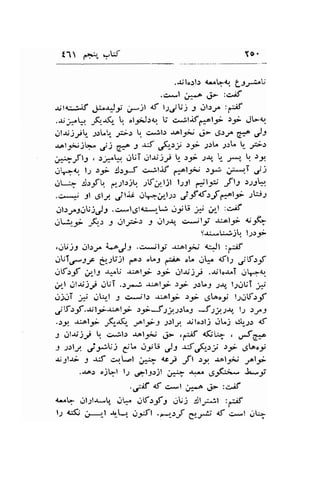 ۲۵۰ کتاب پنجم ۴۶۱
نامشروع بهجامعه داده‌اند.
گفت: حق همین است.
گفتم: مردان و زنانی‌را که از سن تولیدمثل گذشته‌اند
به‌حال خود خواهیم‌گذاشت تا به‌دلخواه با یکدیگر بیامیزند.
ولی هیچ مردی حق نخواهد داشت با دختر یامادر یافرزندان
دختر یا مادر مادر خود نزدیکی کند و هیچ زنی مجازنخواهد
بود با پسر یا پدر خود یا فرزندان آنان بیامیزد ، واگرچنین
زنی آبستن شود نخواهیم گذاشت کودك خود را به‌جهان
بیاورد واگر نتوانیم اورا ازاین‌کار بازداریم باکودك چنان
رفتار خواهیم‌کردکه‌گوئی دراین‌جهان غذائی برای او نیست.
گفت: این نیز قانون شایسته‌ای‌است. ولی‌زنان‌ومردان
چگونه خواهند توانست پدران و دختران و دیگر خویشان
خودرا بازشناسند؟
گفتم: البته نخواهند توانست. ولی‌همهٔ مردان وزنان،
کودکانی راکه میان ماه هفتم وماه دهم ازتاریخ عروسی‌آنان
به‌جهان آمده‌اند. فرزندان خود خواهند نامید واین کودکان
نیز آنان‌را پدر ومادر خود خواهند شمرد. آنان فرزندان این
کودکان‌را نوه‌های خود خواهند دانست و اینان نیز آن‌زن
ومرد را پدربزرگ و مادربزرگ‌خود خواهندخواند.کودکانی
که دریك زمان زاده‌اند برادر وخواهر یکدیگر خواهند بود.
هیچ‌کس ، چنانکه گفتم، حق نخواهد داشت با فرزندان و
نوه‌های خود نزدیکی‌کند ولی قانون مانع زناشوئی برادر و
خواهر نخواهد بود اگر قرعه چنین اصابت کند و خداوند
توسط سخنگوی معبد چنین ازدواجی را اجازه دهد.
گفت: حق همین است که گفتی.
گفتم: اشتراك زنان وکودکان میان پاسداران جامعه
چنان است که تشریح کردیم. اکنون باید این نکته را